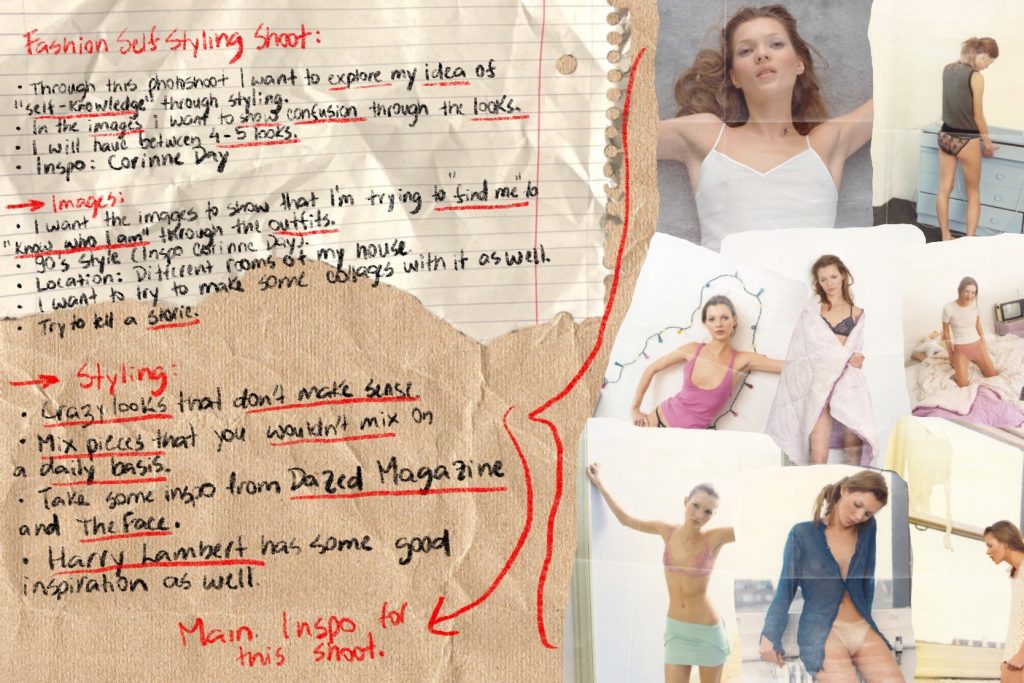 Fashion Self Styling Shoot:
• Through this photoshoot I want to explore my idea of
"self-knowledge" through styling.
• In the images i want to show confusion through the looks.
• I will have between 4-5 looks.
• Inspo: Corinne Day
→ Images:
• I want the images to show that I'm trying to "find me" to
"know who I am" through the outfits.
• 90's style (Inspo Corinne Day).
• Location: Different rooms of my house.
• I want to try to make some collages with it as well.
• Try to tell a storie.
→ Styling:
• Crazy looks that don't make sense
• Mix pieces that you wouldn't mix on
a daily basis.
• Take some inspo from Dazed Magazine
and The Face.
• Harry Lambert has some good
inspiration as well.
Main Inspo for
this shoot.